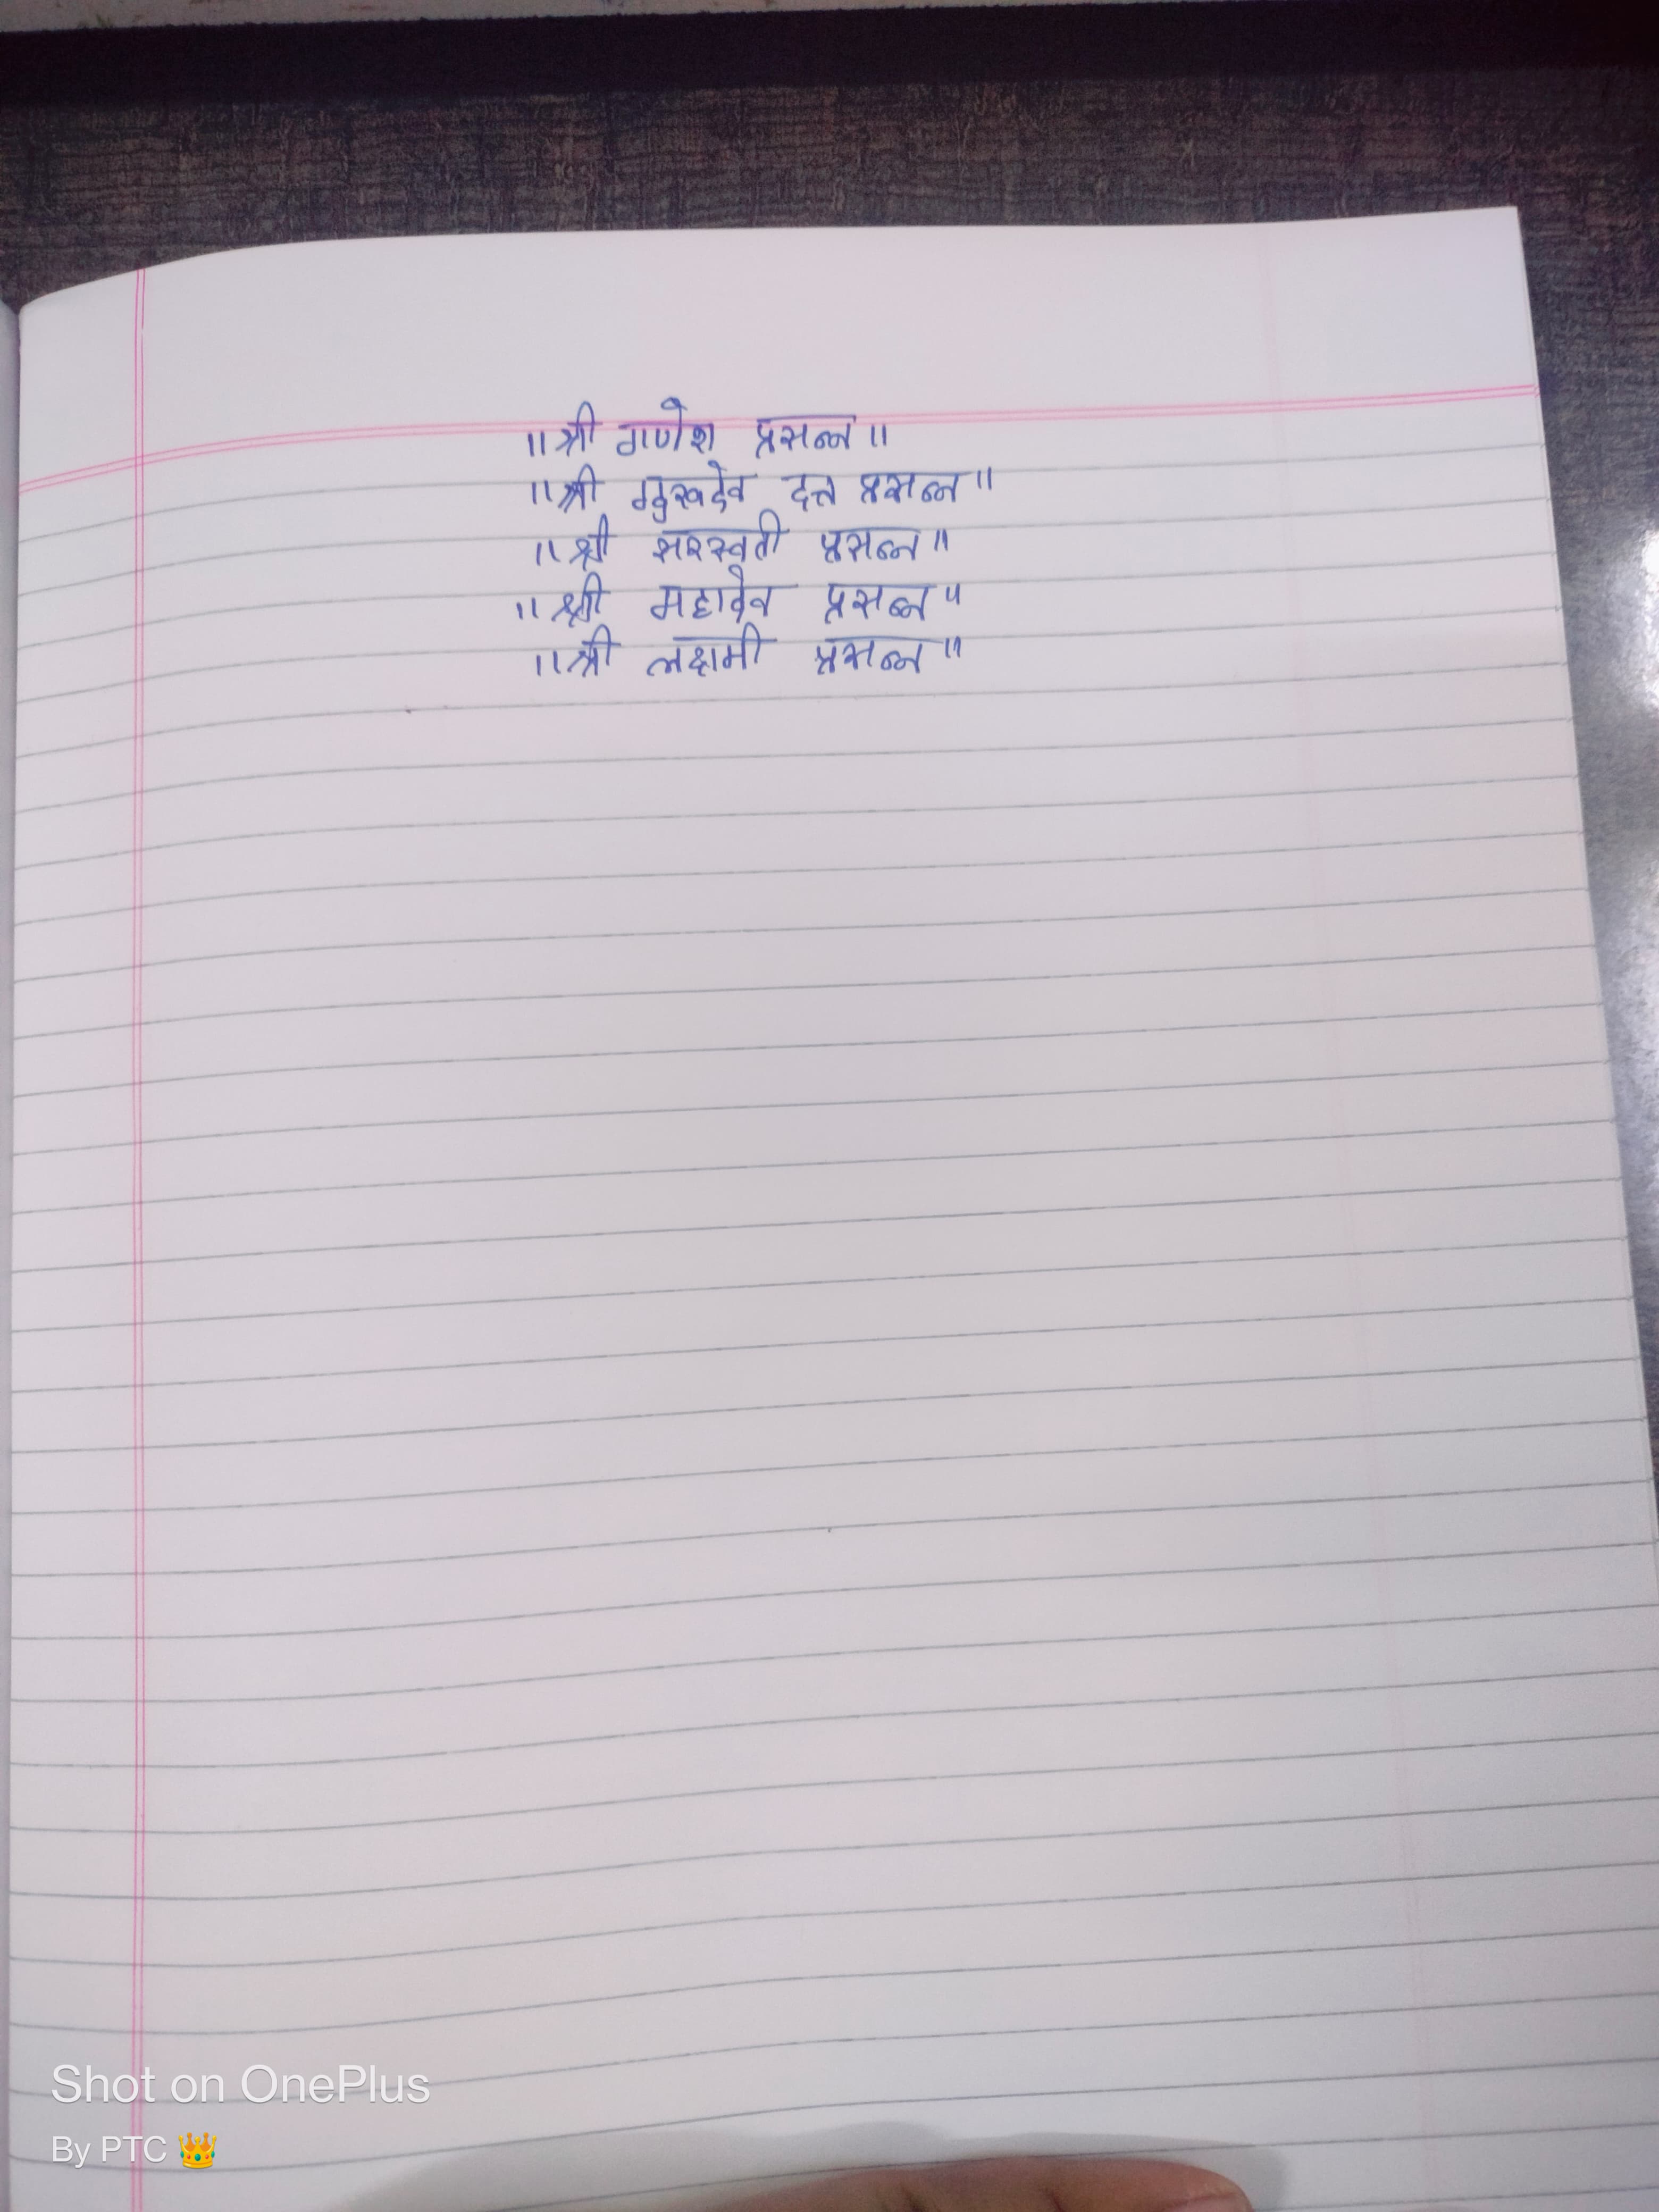 ॥ श्री गणेश प्रसन्न ॥
॥ श्री गुरुदेव दत्त प्रसन्न ॥
॥ श्री सरस्वती प्रसन्न ॥
॥ श्री महादेव प्रसन्न ॥
॥ श्री लक्ष्मी प्रसन्न ॥
Shot on OnePlus
By PTC 👑